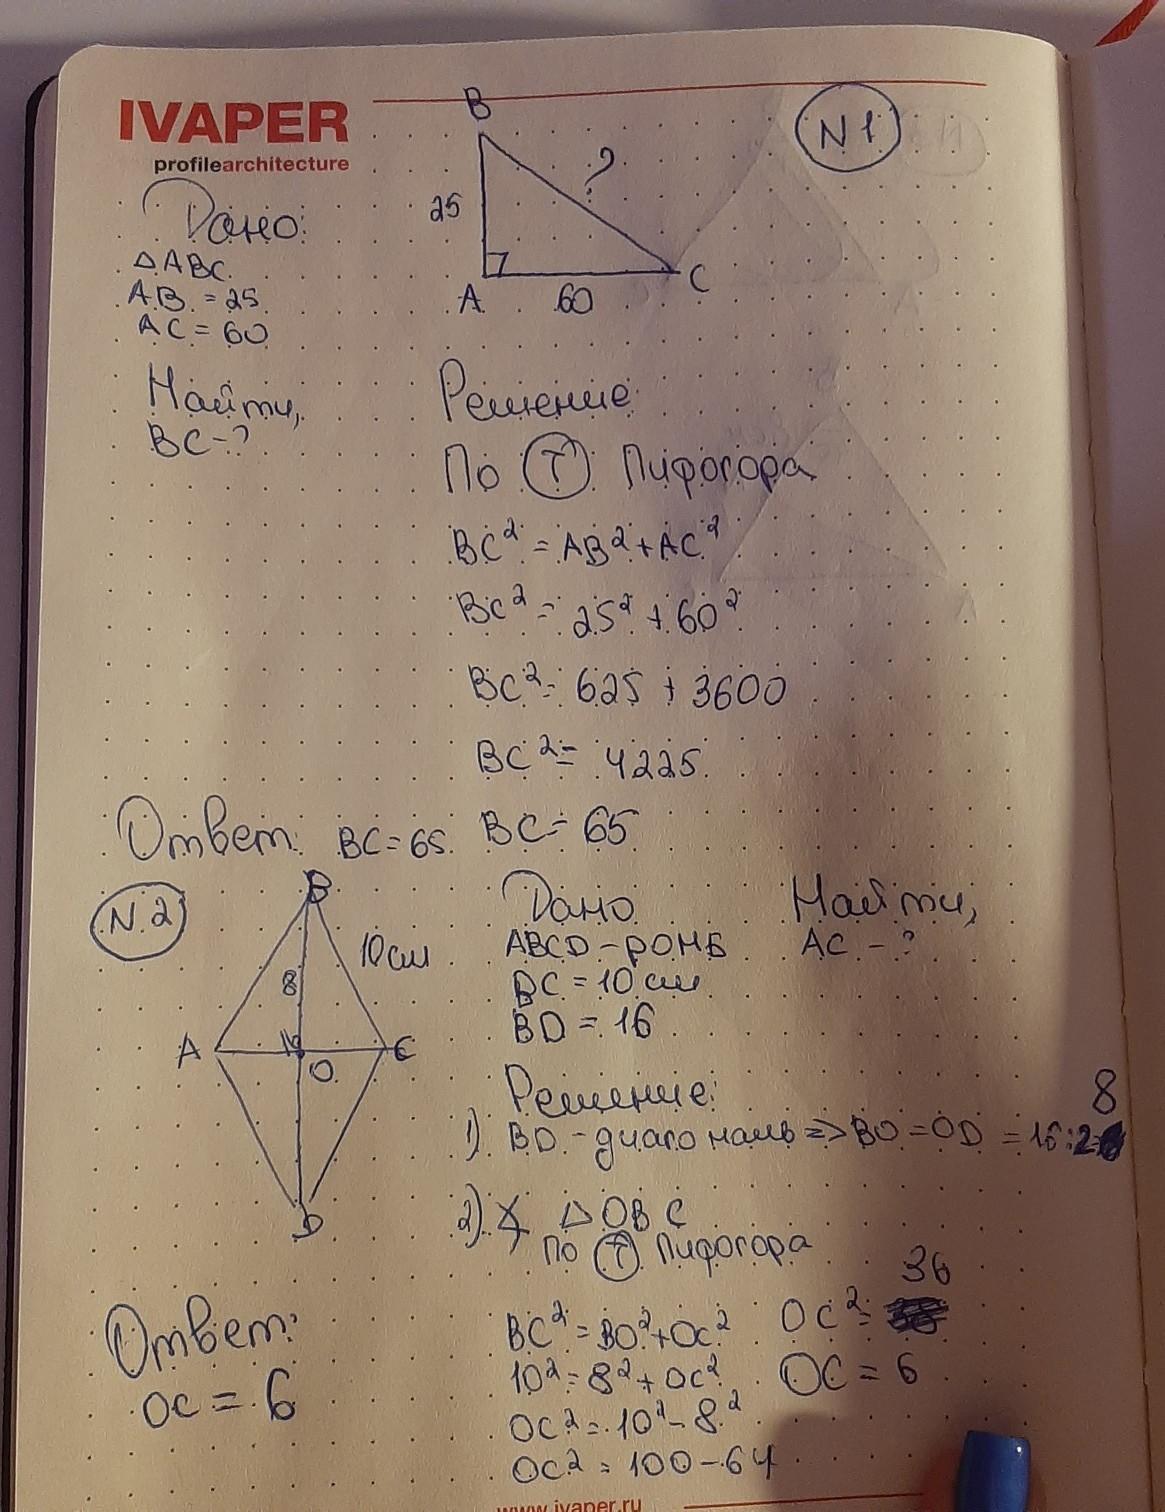 IVAPER
profilearchitecture
N 1
B
25
?
A
60
C
Дано:
△ABC
AB = 25
AC = 60
Найти,
BC - ?
Решение
По Т Пифогора
BC² = AB² + AC²
BC² = 25² + 60²
BC² = 625 + 3600
BC² = 4225
BC = 65
Ответ: BC = 65.
N. 2
B
10 см
8
A
16
C
O
D
Дано
ABCD - ромб
BC = 10 см
BD = 16
Найти,
AC - ?
Решение:
1) BD - диагональ => BO = OD = 16:2 8
2) ∡ △OBC
По Т Пифогора
BC² = BO² + OC²
10² = 8² + OC²
OC² = 10² - 8²
OC² = 100 - 64
OC² = 36
OC = 6
Ответ:
OC = 6
www.ivaper.ru